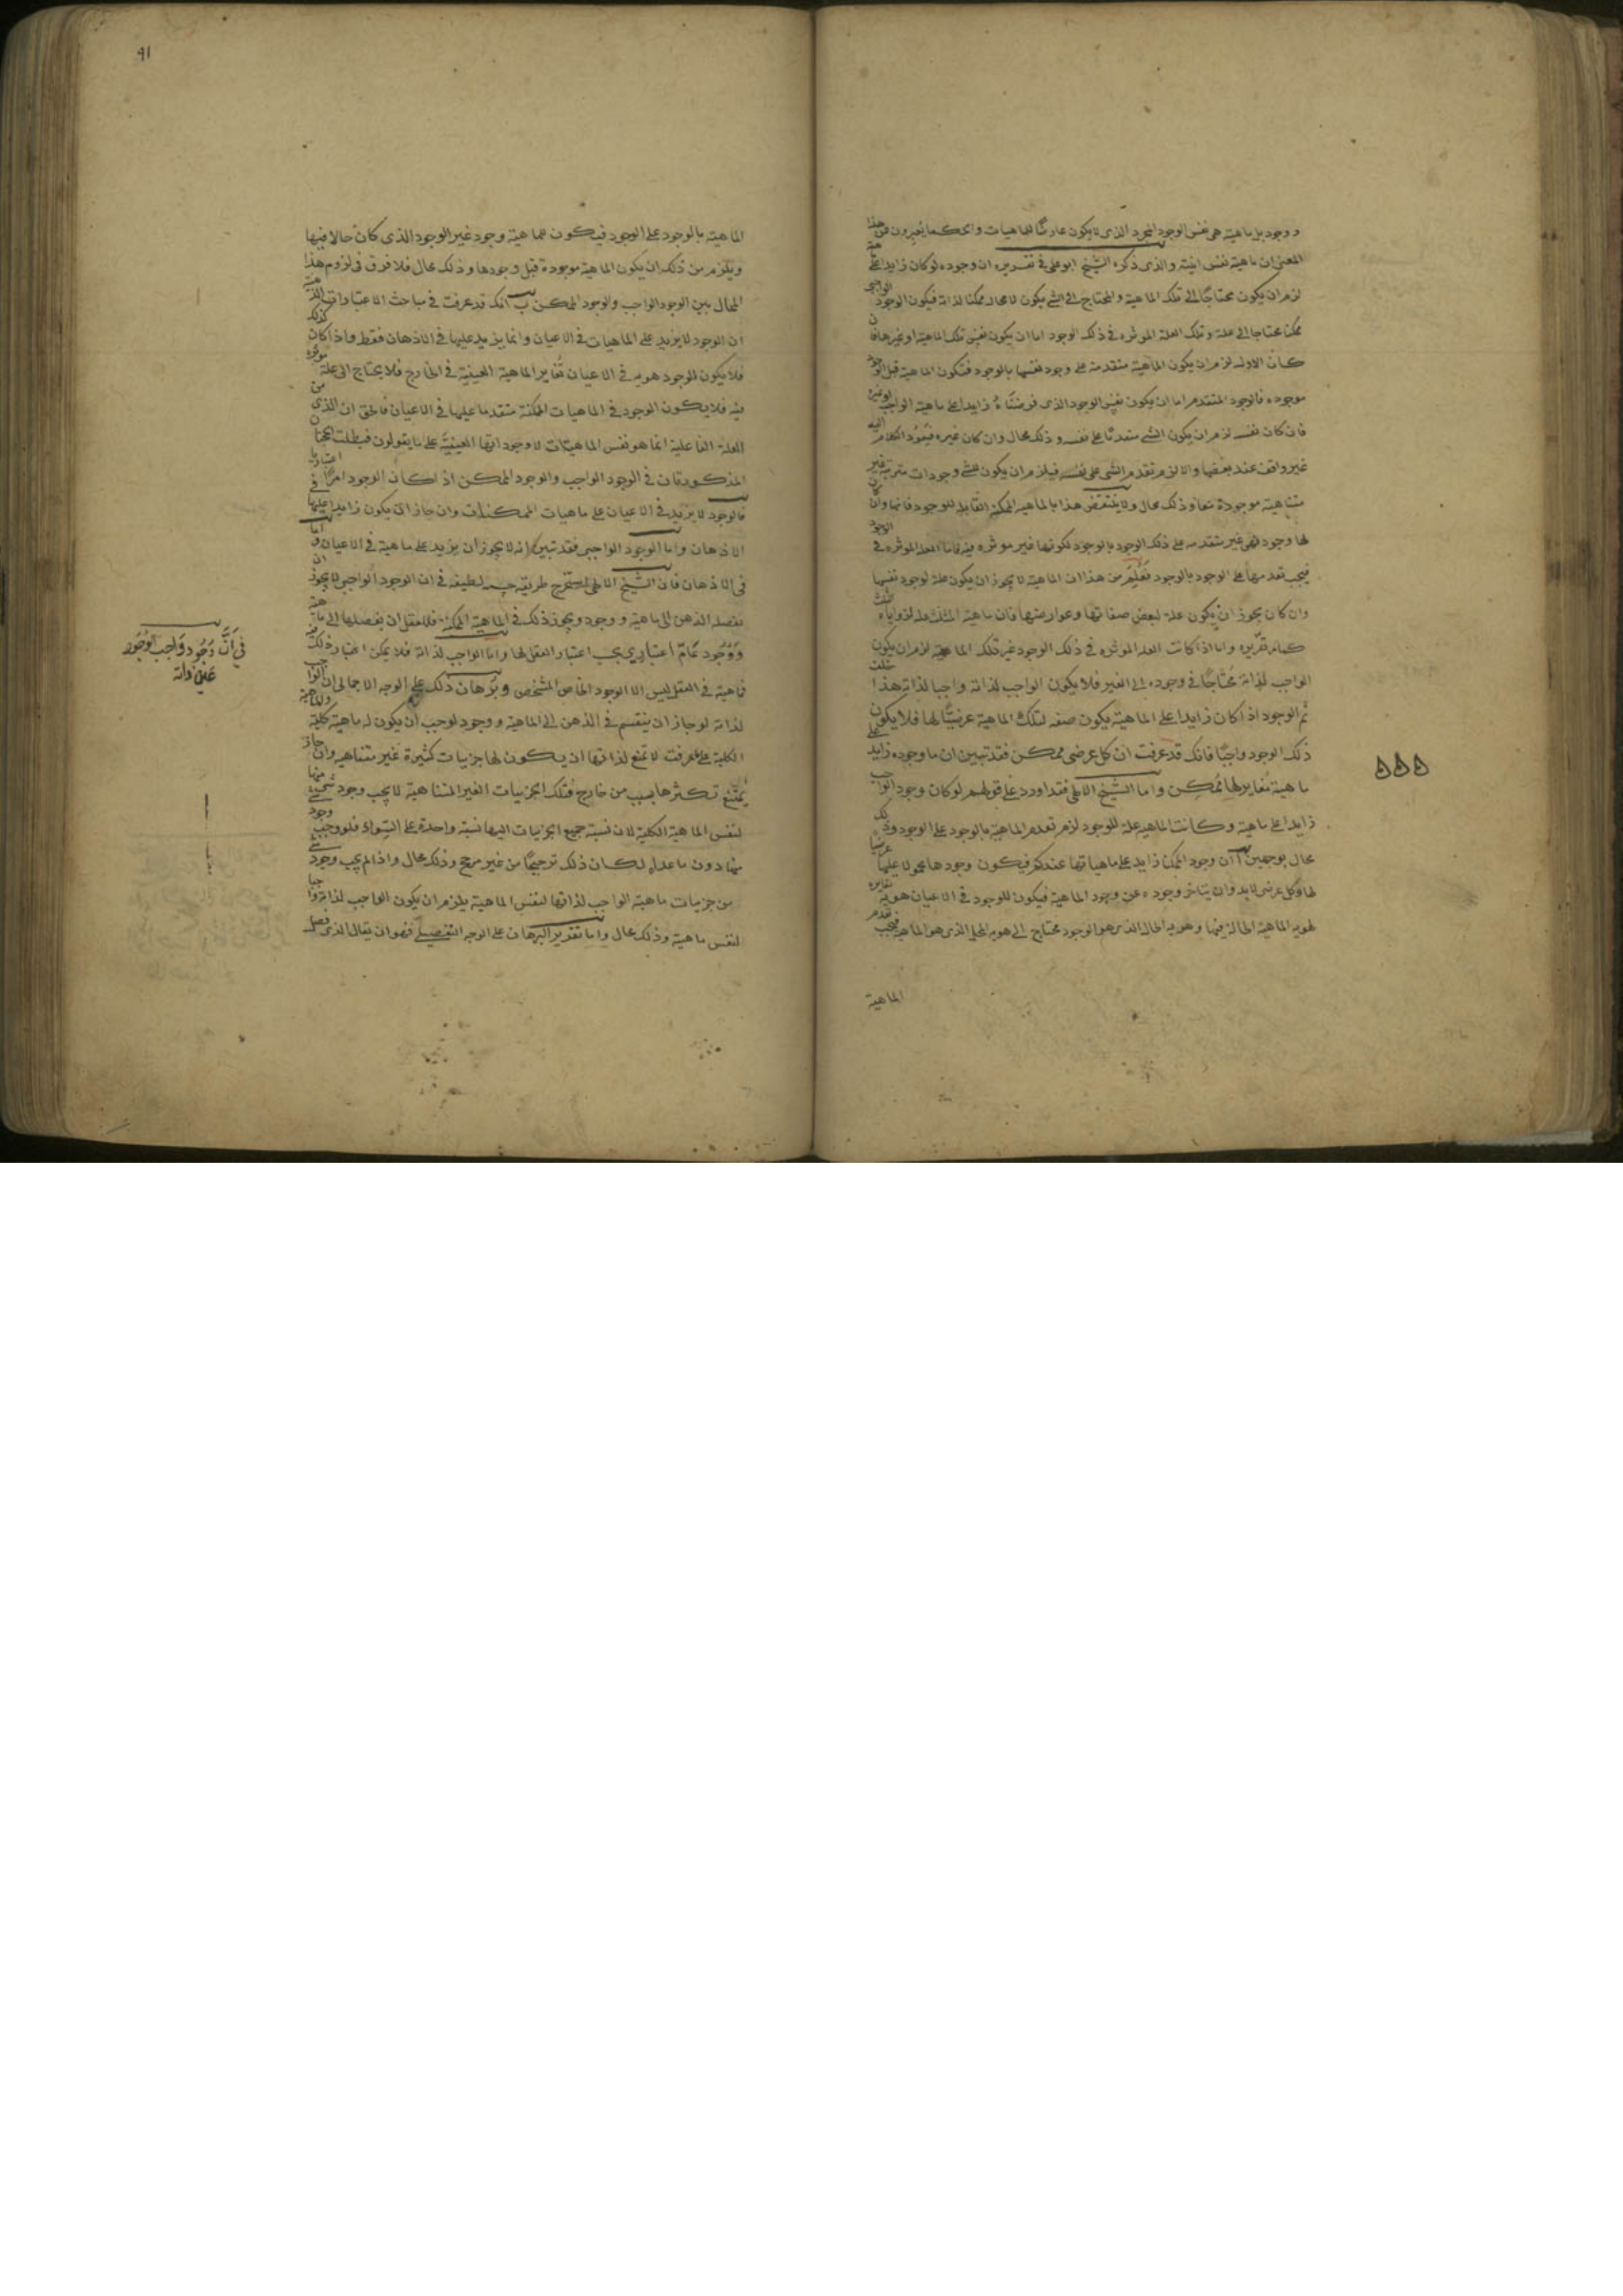 ووجود بل ماهية هي نفس الوجود المجرد الذي لا يكون عارضًا للماهيات والحكما يعبرون عن هذا
المعنى ان ماهية نفس انيته والذي ذكره الشيخ ابو على في تقريره ان وجوده لو كان زايدا على ماهية
لزم ان يكون محتاجًا الى تلك الماهية والمحتاج الى الشي يكون لا محالة ممكنا لذاته فيكون الوجود الواجبى
ممكنا محتاجا الى علة وتلك العلة الموثره في ذلك الوجود اما ان يكون نفس تلك الماهية او غيرها فان
كان الاول لزم ان يكون الماهية متقدمة على وجود نفسها بالوجود فتكون الماهية قبل الوجود
موجوده فالوجود المتقدم اما ان يكون نفس الوجود الذي فرضناه زايدا على ماهية الواجب او غيره
فان كان نفسه لزم ان يكون الشي متقدمًا على نفسه وذلك محال وان كان غيره فيعود الكلام اليه
غير واقف عند بعضها والا لزم تقدم الشي على نفسه فيلزم ان يكون للشي وجودات مترتبة غير
متناهية موجودة معا وذلك محال ولا ينتقض هذا بالماهيه الممكنه القابله للوجود فانها وان كان
لها وجود فهي غير متقدمه على ذلك الوجود بالوجود لكونها غير موثره فيه فاما العله الموثره في الوجود
فيجب تقدمها على الوجود بالوجود فعلم من هذا ان الماهية لا يجوز ان يكون علة لوجود نفسها
وان كان يجوز ان يكون علة لبعض صفاتها وعوارضها فان ماهية المثلث علة لزواياه الثلث
كما مر تقريره واما اذا كانت العله الموثره في ذلك الوجود غير تلك الماهية لزم ان يكون
الواجب لذاته محتاجًا في وجوده الى الغير فلا يكون الواجب لذاته واجبا لذاته هذا خلف
ثم الوجود اذا كان زايدا على الماهية يكون صفه لتلك الماهية عرضيًا لها فلا يكون
ذلك الوجود واجبًا فانك قد عرفت ان كل عرضي ممكن فقد تبين ان ما وجوده زايد على
ماهية مغاير لها ممكن واما الشيخ الالهى فقد اورد على قولهم لو كان وجود الواجب
زايدا على ماهية وكانت الماهية علة للوجود لزم تقدم الماهية بالوجود على الوجود وذلك
محال بوجهين ا ان وجود الممكنا زايد على ماهياتها عندكم فيكون وجودها محمولا عليها عرضيا
لها وكل عرضي لا بد وان يتاخر وجوده عن وجود الماهية فيكون للوجود في الاعيان هوية مغايره
لهويه الماهية الحالة فيها وهويه الحال الذي هو الوجود محتاج الى هويه المحل الذي هو الماهية فيجب تقدم
الماهية
٩١
الماهية بالوجود على الوجود فيكون للماهية وجود غير الوجود الذي كان حالا فيها
ويلزم من ذلك ان يكون الماهية موجودة قبل وجودها وذلك محال فلا فرق في لزوم هذا
المحال بين الوجود الواجب والوجود الممكن ب انك قد عرفت في مباحث الاعتبارات الذهنية
ان الوجود لا يزيد على الماهيات في الاعيان وانما يزيد عليها في الاذهان فقط واذا كان كذلك
فلا يكون للوجود هويه في الاعيان تغاير الماهية العينية في الخارج فلا يحتاج الى علة موثره
فيه فلا يكون الوجود في الماهيات الممكنة متقدما عليها في الاعيان فالحق ان الذي من
العلة الفاعلية انما هو نفس الماهيات لا وجوداتها العينية على ما يقولون فبطلت الحجتان
المذكورتان في الوجود الواجب والوجود الممكن اذ كان الوجود امرًا اعتباريا
فالوجود لا يزيد في الاعيان على ماهيات الممكنات وان جاز ان يكون زايدا عليها في
الاذهان واما الوجود الواجبى فقد تبين انه لا يجوز ان يزيد على ماهية في الاعيان واما
في الاذهان فان الشيخ الالهى استخرج طريقه حسنه لطيفه في ان الوجود الواجبى لا يجوز ان
يفصله الذهن الى ماهية ووجود ويجوز ذلك في الماهية الممكنة فللعقل ان يفصلها الى ماهية
ووجود عامّ اعتبارى بحسب اعتبار العقل لها واما الواجب لذاته فلا يمكن اعتبار ذلك فيه
فماهية في العقل ليس الا الوجود الخاص المشخص وبرهان ذلك على الوجه الاجمالى ان الواجب
لذاته لو جاز ان ينقسم في الذهن الى الماهية ووجود لوجب ان يكون له ماهية كلية والماهية
الكلية على ما عرفت لا تمنع لذاتها ان يكون لها جزييات كثيرة غير متناهيه وان جاز
يمتنع تكثرها بسبب من خارج فتلك الجزييات الغير المتناهية لا يجب وجود شي منها
لنفس الماهية الكلية لان نسبة جميع الجزييات اليها نسبة واحدة على السواء فلو وجب وجود
منها دون ما عداه لكان ذلك ترجيحًا من غير مرجح وذلك محال واذا لم يجب وجود شي
من جزييات ماهية الواجب لذاتها لنفس الماهية يلزم ان يكون الواجب لذاته واجبا
لنفس ماهية وذلك محال واما تقدير البرهان على الوجه التفصيلى فهو ان يقال الذى فصل
في أنَّ وُجُود واجب الوُجُود
عَين ذاته